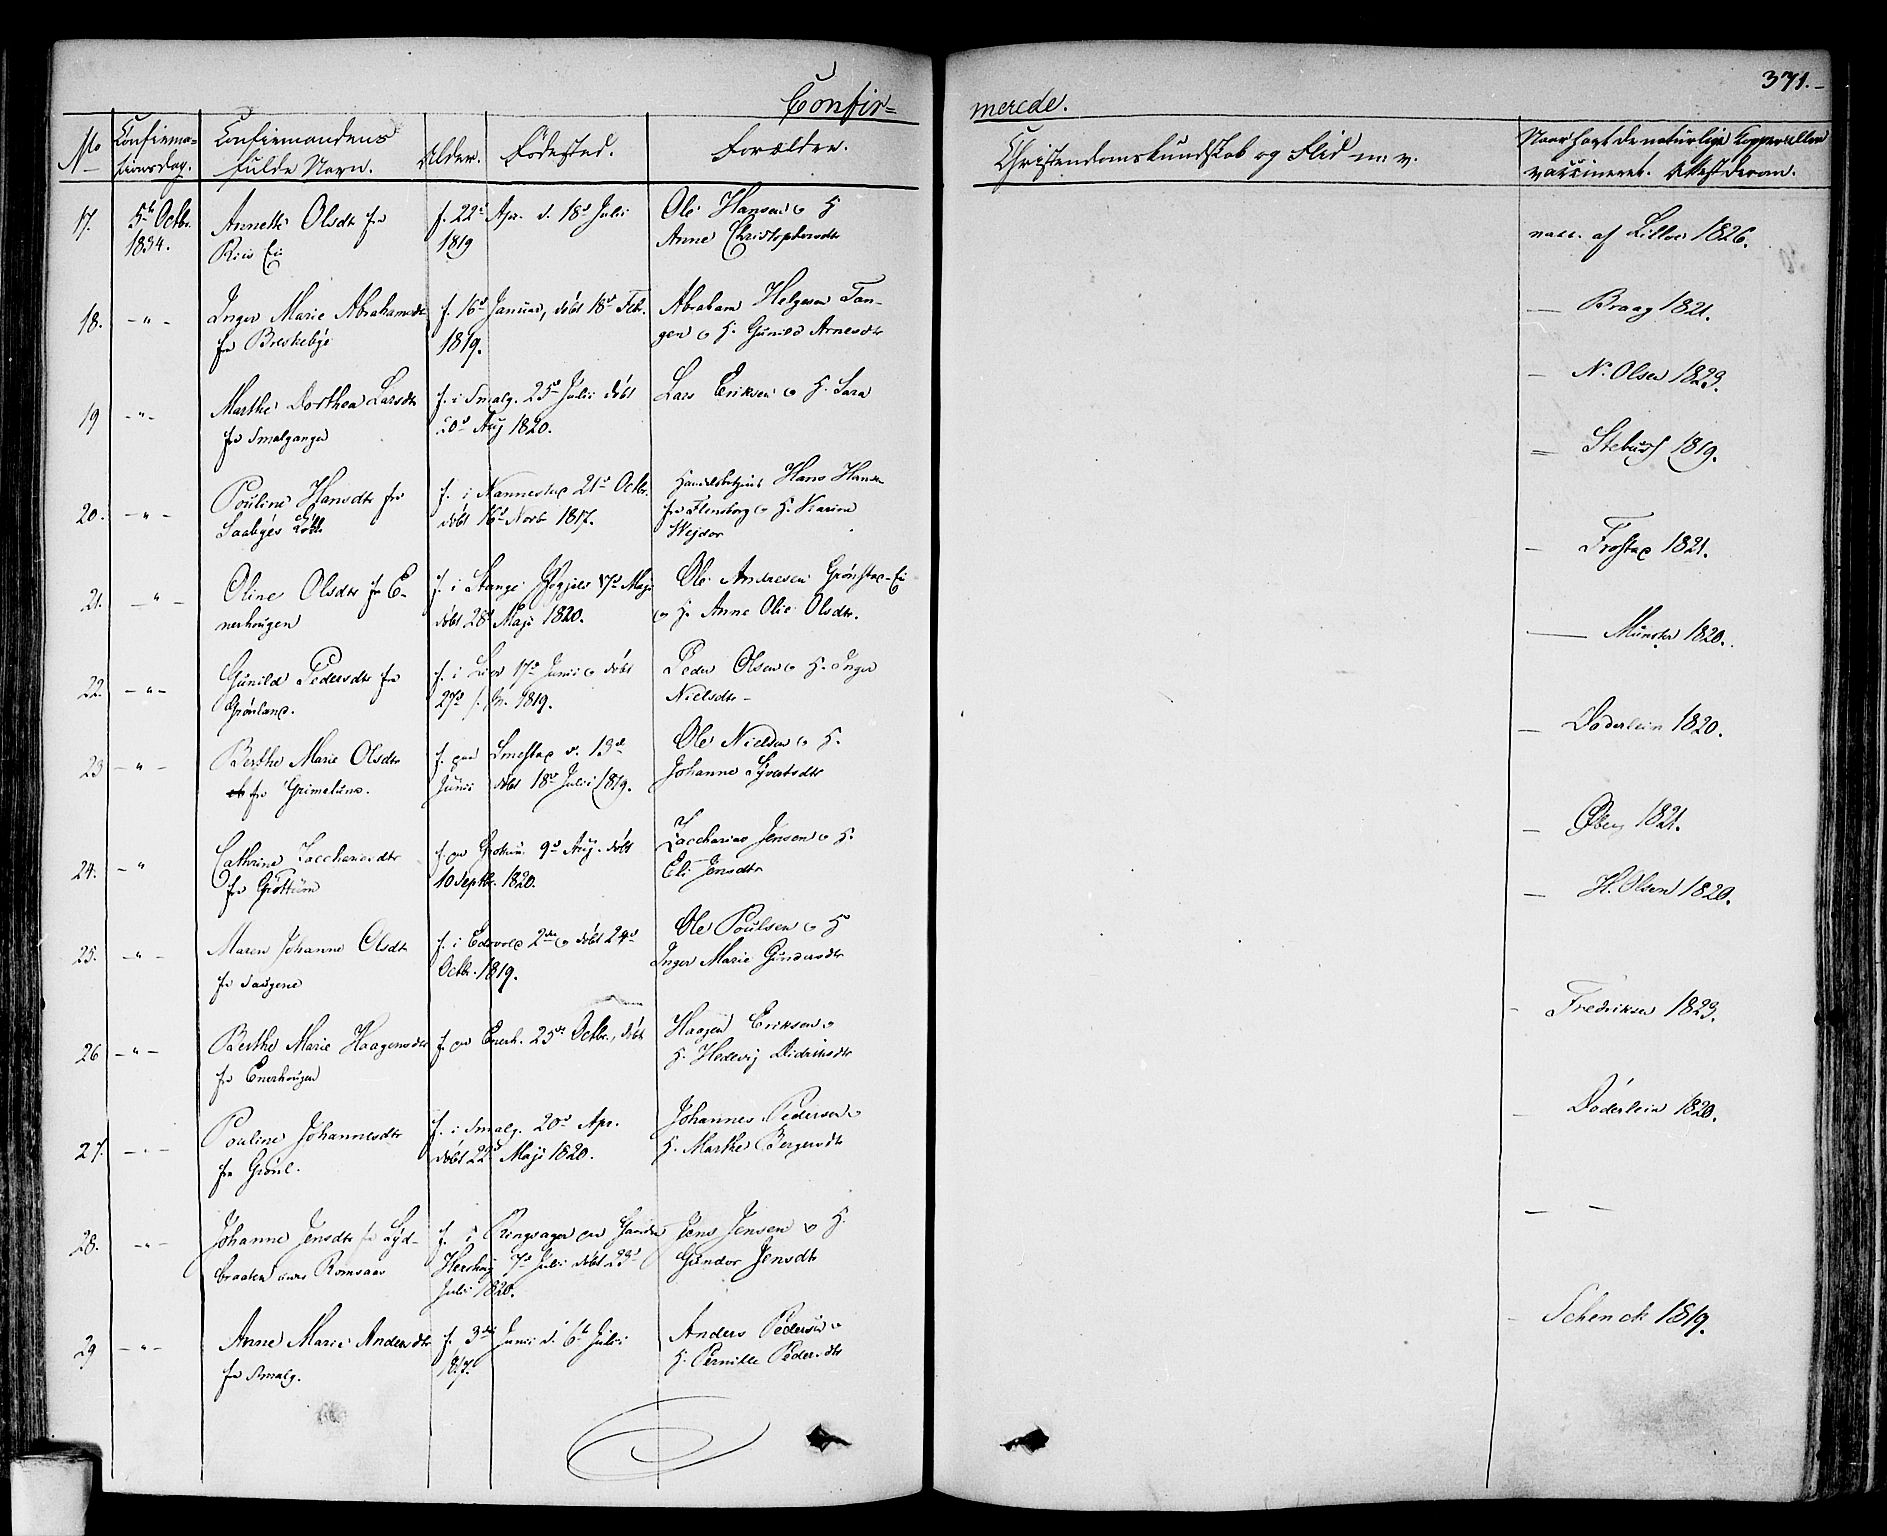 371.
Confir=
merede.
No
Confirma=
tionsdag.
Confirmandens
fulde Navn.
Alder.
Fødested.
Forældre.
Christendomskundskab og Flid m: v.
Naar havt de naturlige Kopper eller
vaccineret. Attest derom.
17.
5te Octbr.
1834.
Annette Olsdtr fra
f. 22de Apr. d. 18de Julii
1819
Ole Hansen o H
Anne Christophersdtr
vacc. af Lilloe 1826.
18. - " -
Inger Marie Abrahamsdtr
fra Breskebye
f. 16de Januar, døbt 18de Febr.
1819.
Abraham Helgesen Tan-
gen o H. Gunild Arnesdtr
— Braag 1821.
19 - " -
Marthe Dorthea Larsdtr
fra Smalgangen
f. i Smalg. 25de Julii døbt
20de Aug 1820.
Lars Eriksen o H. Sara
— N. Olsen 1823.
20. - " -
Pouline Hansdtr fra
Saabyes Løkke
f. i Nannestad 21de Octbr.
døbt 16de Novbr 1817.
Hans Hansen
fra Flensborg o H. Karine
Wejdor
= 1819.
21. - " -
Oline Olsdtr fr E-
nerhougen
f. i Stange 17de Maji
døbt 28de Maji 1820.
Ole Andresen Grønstad-Ei
o H. Anne Olie Olsdtr.
— Frostad 1821.
22. - " -
Gunild Pedersdtr fra
Grønland.
f. i Lier 17de Junii o døbt
27de s. M. 1819.
Peder Olsen o H. Inger
Nielsdtr -
— Münster 1820.
23 - " -
Berthe Marie Olsdtr
fra Grimelund.
f. paa Smestad d. 13de
Junii døbt 18de Julii 1819.
Ole Nielsen o H.
Johanne Syvertsdtr
— Døderlein 1820.
24. - "
Cathrine Zachariasdtr
fra Grøttum
9de Aug. døbt
10 Septbr. 1820.
Zacharias Jensen o H.
Eli Jensdtr
— Øberg 1821.
25. - " -
Maren Johanne Olsdtr
fra Saugene
f. i Edsvold 2den o døbt 24de
Octbr. 1819.
Ole Poulsen o H
Inger Marie Gundersdtr
— H. Olsen 1820.
26 - " -
Berthe Marie Haagensdtr
fra Enerhougen
f. paa Enerh. 25de Octbr., døbt
Haagen Eriksen o
H. Hedevig Didriksdtr
- Fredriksen 1823.
27. - " -
Pouline Johannesdtr
fra Grønl.
f. i Smalg. 20de Apr.
døbt 22de Maji 1820.
Johannes Pedersen o
H. Marthe Bergersdtr
— Døderlein 1820.
28. - " -
Johanne Jensdtr fr Lyd-
braaten under Romsaas
f. i Ringsager paa
7de Julii døbt 23de
Julii 1820.
Jens Jensen o H.
Gundor Jensdtr
— —
29 - " -
Anne Marie Andersdtr
fra Smalg.
f. 3die Junii d. 6te Julii
1817.
Anders Pedersen o
H. Pernille Pedersdtr
- Schenck 1819.